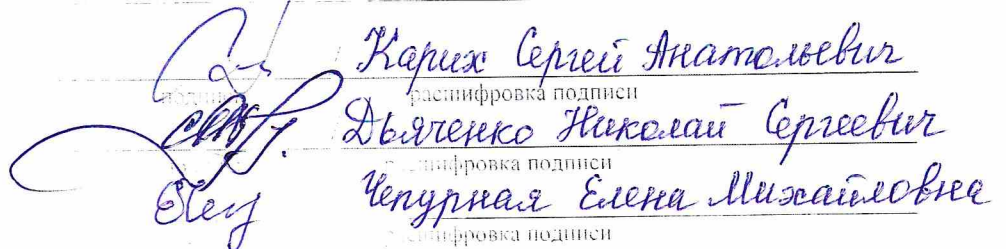 Карих Сергей Анатольевич
подпись расшифровка подписи
Дьяченко Николай Сергеевич
расшифровка подписи
Чепурная Елена Михайловна
расшифровка подписи